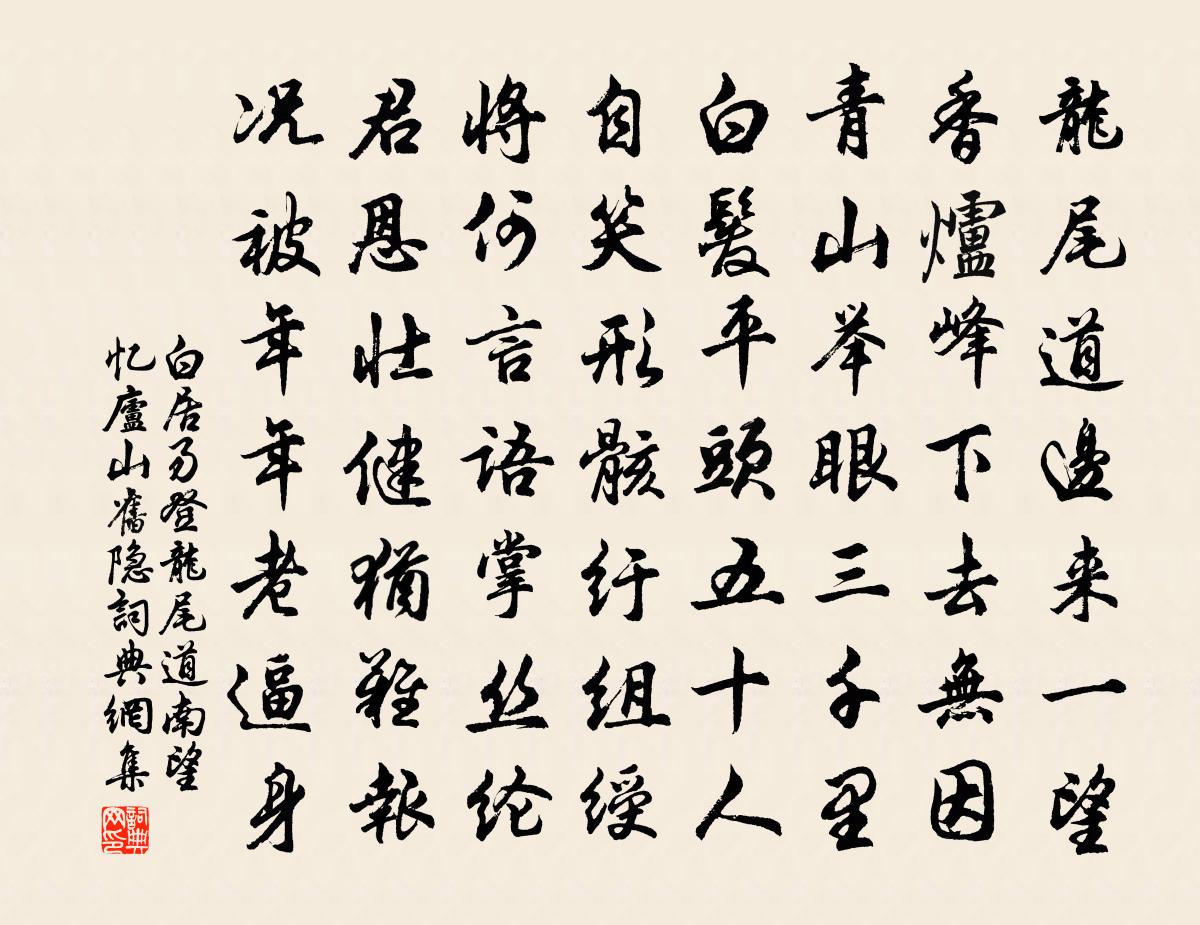 龍尾道邊来一望
香爐峰下去無因
青山举眼三千里
白髮平頭五十人
自笑形骸纡組綬
將何言語掌丝纶
君恩壮健猶難報
况被年年老逼身
白居易登龍尾道南望
忆廬山舊隐詞典網集
詞典
网印